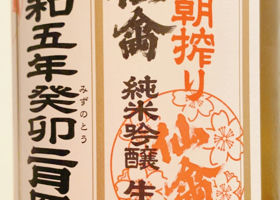 朝搾り
仙禽
仙禽
純米吟醸 生
和五年癸卯二月
みずのとう